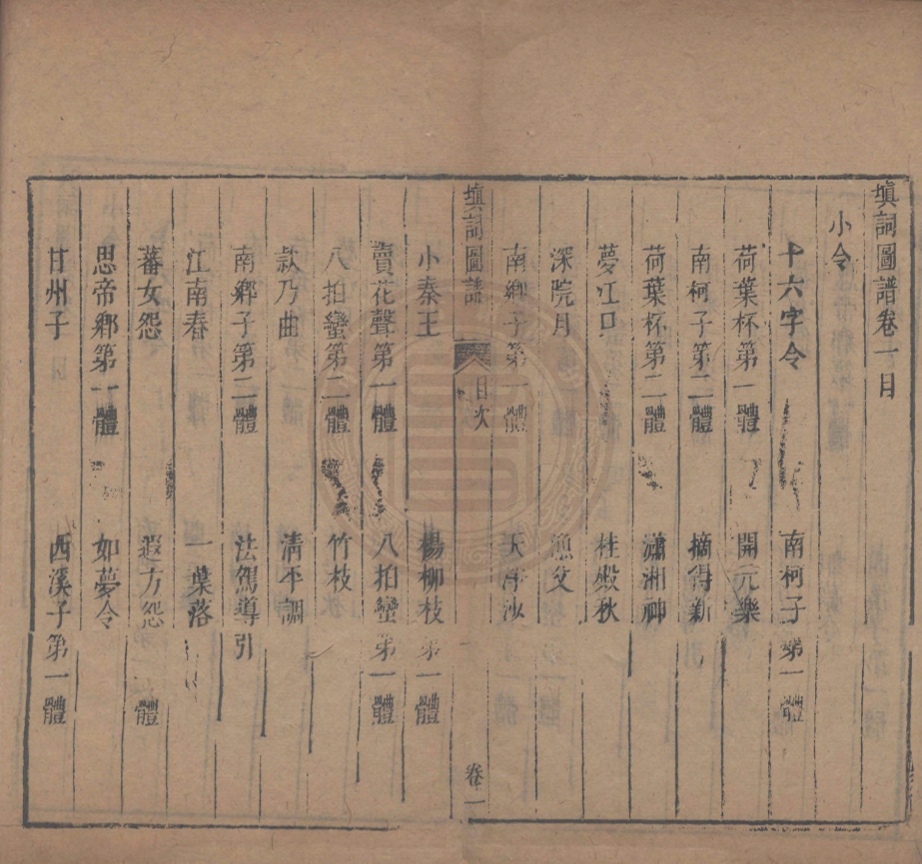 塡詞圖譜卷一目
小令
十六字令 南柯子第一體
荷葉杯第一體 開元樂
南柯子第二體 摘得新
荷葉杯第二體 瀟湘神
夢江口 桂殿秋
深院月 漁父
南鄉子第一體 天淨沙
塡詞圖譜 目次 一 卷一
小秦王 楊柳枝第一體
賣花聲第一體 八拍蠻第一體
八拍蠻第二體 竹枝
欸乃曲 清平調
南鄉子第二體 法駕導引
江南春 一葉落
蕃女怨 遐方怨 體
思帝鄉第一體 如夢令
甘州子 西溪子第一體